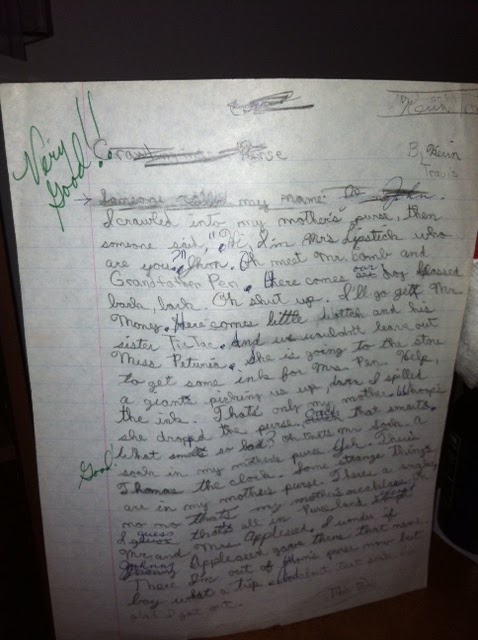 Kevin
Very Good!!
Purse
By Kevin
Travis
Someone my name. John.
I crawled into my mother's purse, then
someone said, "Hi, I'm Mrs. Lipstick who
are you. Jhon. Oh meet Mr. Comb and
Grandfather Pen. Here comes our dog
bark, bark. Oh shut up. I'll go get Mr.
Money. Here comes little and his
sister TicTac. And we wouldn't leave out
Miss Petunia. She is going to the store
to get some ink for Mrs. Pen. Help,
a giants picking us up, I spilled
the ink. That's only my mother. Whoops
she droppd the purse, that smarts.
What so bad? Oh that's Mr. Sock. A
sock in my mother's purse Yeh. There's
Good!
Thomas the clock. Some strange things
are in my mother's purse. There's a
no no that's my mother's necklace.
I guess that's all in Purse land
Mr. and Mrs. Appleseed. I wonder if
Johnny Appleseed gave them that name.
There I'm out of mom's purse now but
boy what a trip
glad I got out.
The End